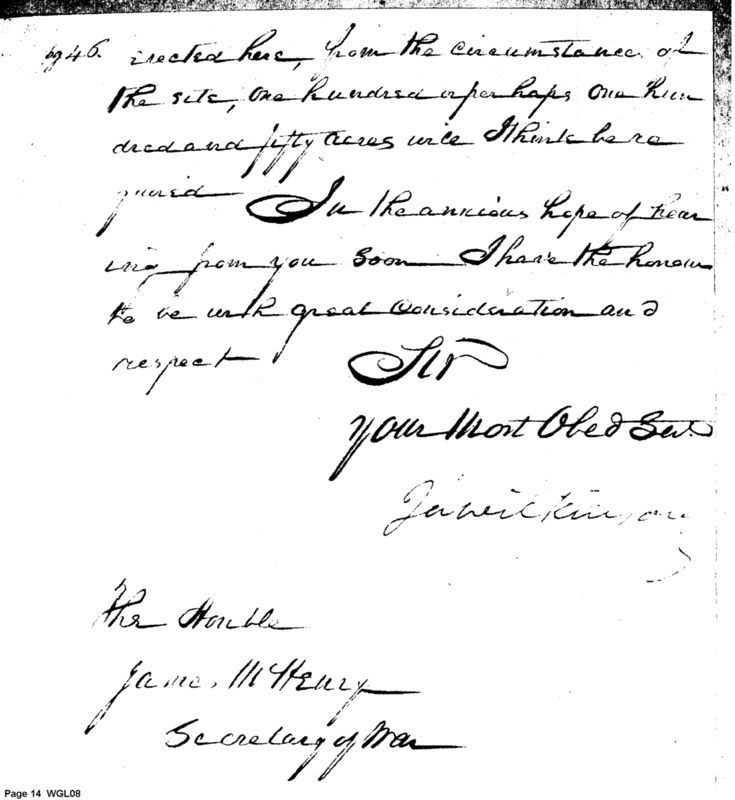 pg 46. erected here, from the circumstances of
the site, one hundred or perhaps one hun
dred and fifty acres will I think be re
quired In the anxious hope of hear
ing from you soon I have the honour
to be with great Consideration and
respect Sir
your Most Obed Sert
Ja Wilkinson
The Honble
James McHenry
Secretary of War
Page 14 WGL08